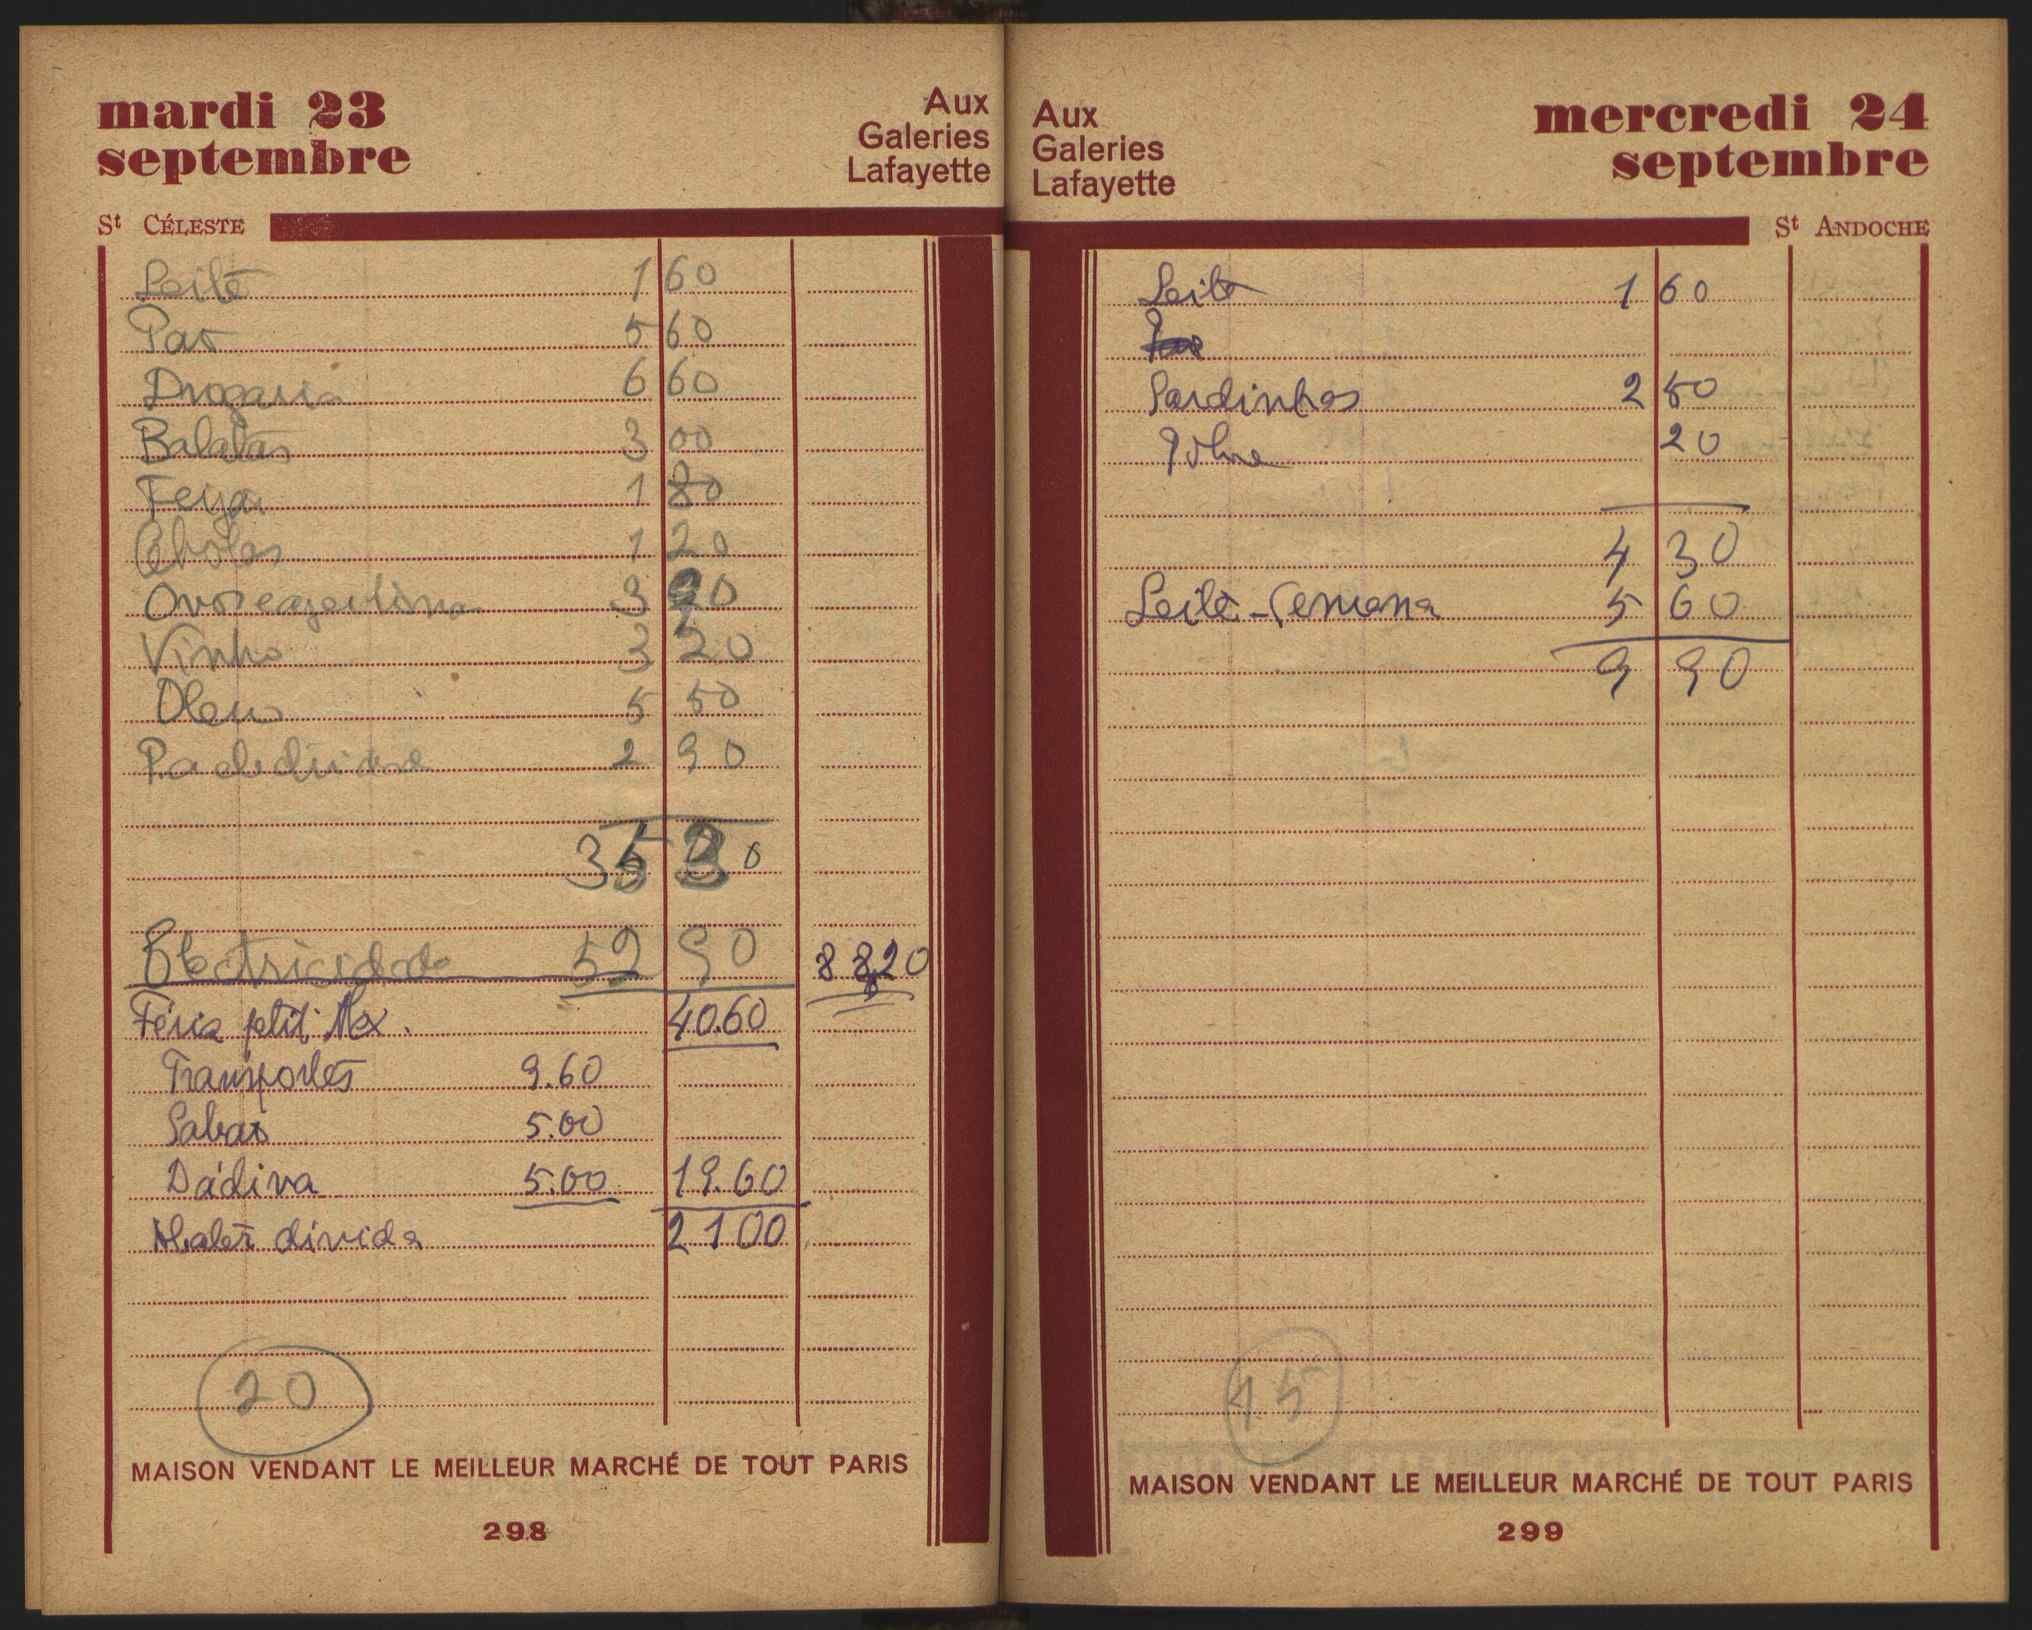 mardi 23
septembre
Aux
Galeries
Lafayette
St CÉLESTE
Leite 1 60
Pao 5 60
Drogaria 6 60
Batatas 3 00
Feijao 1 80
Cebolas 1 20
Ovos e 3
Vinho 3 20
Oleo 5 50
2 90
35 30
Electricidade 52 90 88 20
Féria petit. Max. 40.60
Transportes 9.60
Sabao 5.00
Dádiva 5.00 19.60
Abater divida 21 00
20
MAISON VENDANT LE MEILLEUR MARCHÉ DE TOUT PARIS
298
Aux
Galeries
Lafayette
mercredi 24
septembre
St ANDOCHE
Leite 1 60
Sardinhas 2 50
20
4 30
Leite - Semana 5 60
9 90
15
MAISON VENDANT LE MEILLEUR MARCHÉ DE TOUT PARIS
299